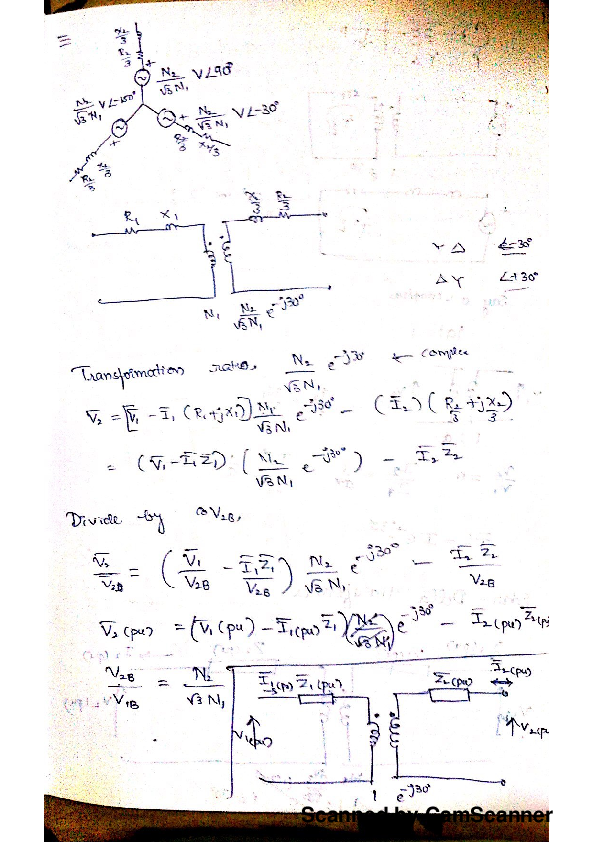 =
X₂/3
r₂/3
N₂/√3 N₁ V∠90°
N₂/√3 N₁ V∠-150°
N₂/√3 N₁ V∠-30°
R₂/3 X₂/3
R₂/3 X₂/3
R₁ X₁ X₂/3 R₂/3
Y Δ ∠-30°
Δ Y ∠+30°
N₁ N₂/√3 N₁ e^-j30°
Transformation ratio, N₂/√3 N₁ e^-j30 ← complex
V̄₂ = [V̄₁ - Ī₁ (R₁+jX₁)] N₂/√3 N₁ e^-j30° - (Ī₂) (R₂/3 + jX₂/3)
= (V̄₁ - Ī₁ Z̄₁) (N₂/√3 N₁ e^-j30°) - Ī₂ Z̄₂
Divide by V₂B,
V̄₂/V₂B = (V̄₁/V₂B - Ī₁ Z̄₁/V₂B) N₂/√3 N₁ e^-j30° - Ī₂ Z̄₂/V₂B
V̄₂(pu) = (V̄₁(pu) - Ī₁(pu) Z̄₁) (N₂/√3 N₁) e^-j30° - Ī₂(pu) Z̄₂(p
V₂B/V₁B = N₂/√3 N₁
Z̄₁(pu) Z̄₂(pu) Ī₂(pu)
V₁(pu) V₂(pu
1 e^-j30
Scanned by CamScanner